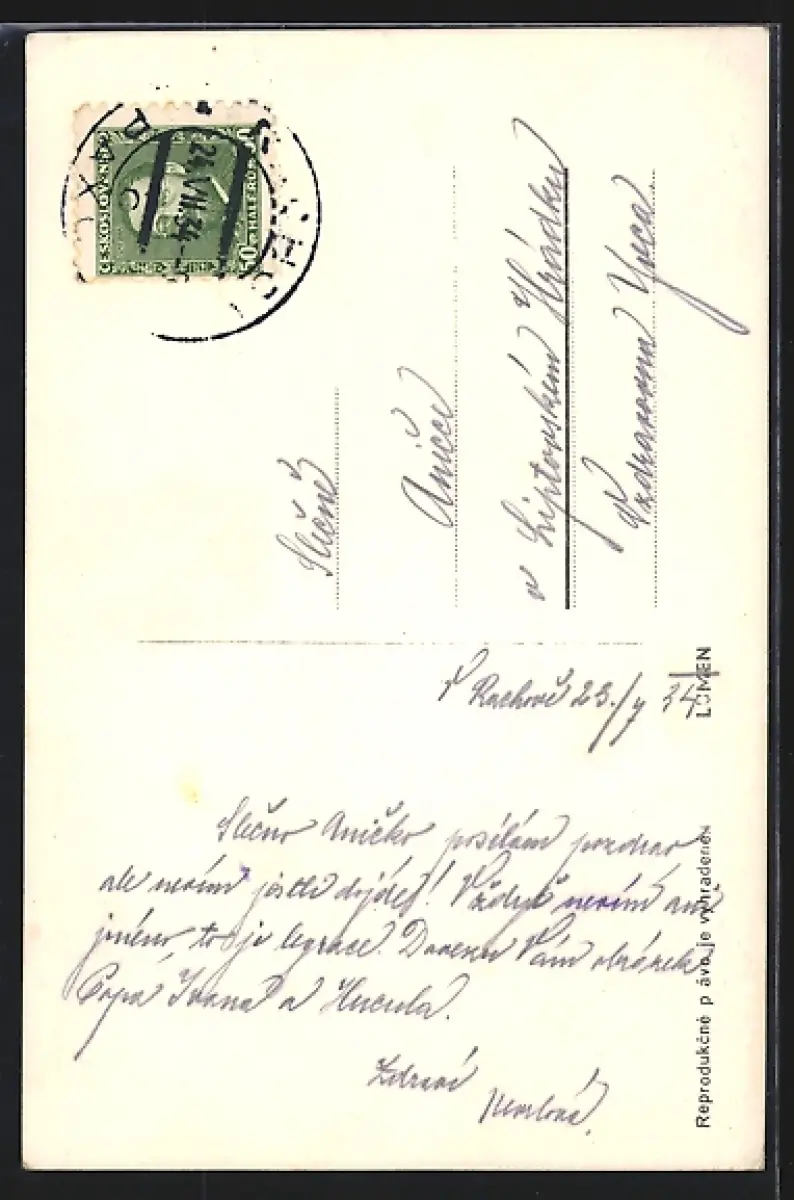 ČESKOSLOVENSKO
50 HALÉŘŮ 50
24.VII.34
РАХО
Slečně
Aničce
v Liptovském Hrádku
V Rachově 23./7 34
LUMEN
Slečno Aničko posílám pozdrav
ale nevím jestli dojde! Vždyť nevím ani
jméno, to je legrace. Dovezu Vám obrázek
Popa Ivana a Hucula.
Zdraví
Reprodukčné právo je vyhradené